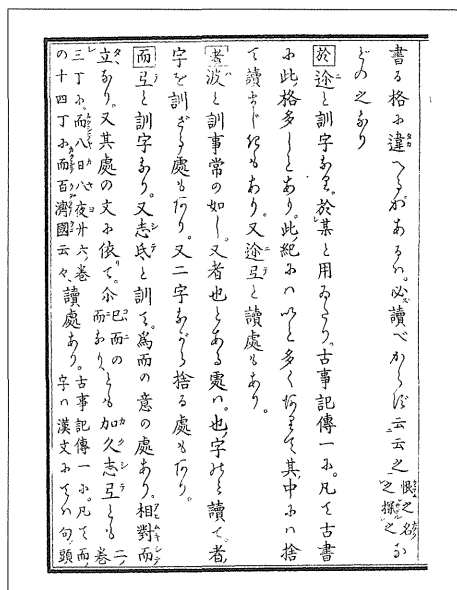 書る格に違へるがあるハ。必讀べからず云云之恨之名な之探之
どの之なり
於 迩と訓字なり。於某と用ゐたり。古事記傳一に。凡て古書
に此格多しとあり。此紀にハいと多くありて其中にハ捨
て讀まじきもあり。又迩弖と讀處もあり。
者 波と訓事常の如し。又者也とある處ハ。也字のミ讀て。者
字を訓ざる處もあり。又二字ながら捨る處もあり。
而 弖と訓字なり。又志弖と訓て。爲而の意の處あり。相對而
立なり。又其處の文に依て。尒而なり。巳而の とも加久志弖とも二ノ卷
三丁に。而八日八夜廿六ノ卷の十四丁に而百濟國云々、讀處あり。古事記傳一に。凡て而ノ字ハ漢文にてハ句ノ頭